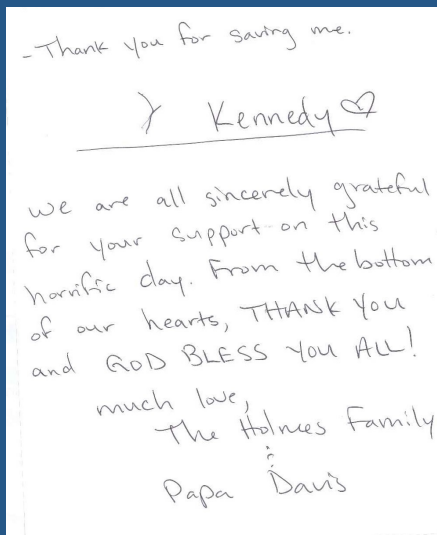 - Thank you for saving me.
Kennedy
we are all sincerely grateful
for your support on this
horrific day. From the bottom
of our hearts, THANK YOU
and GOD BLESS YOU ALL!
much love,
The Holmes Family
Papa Davis